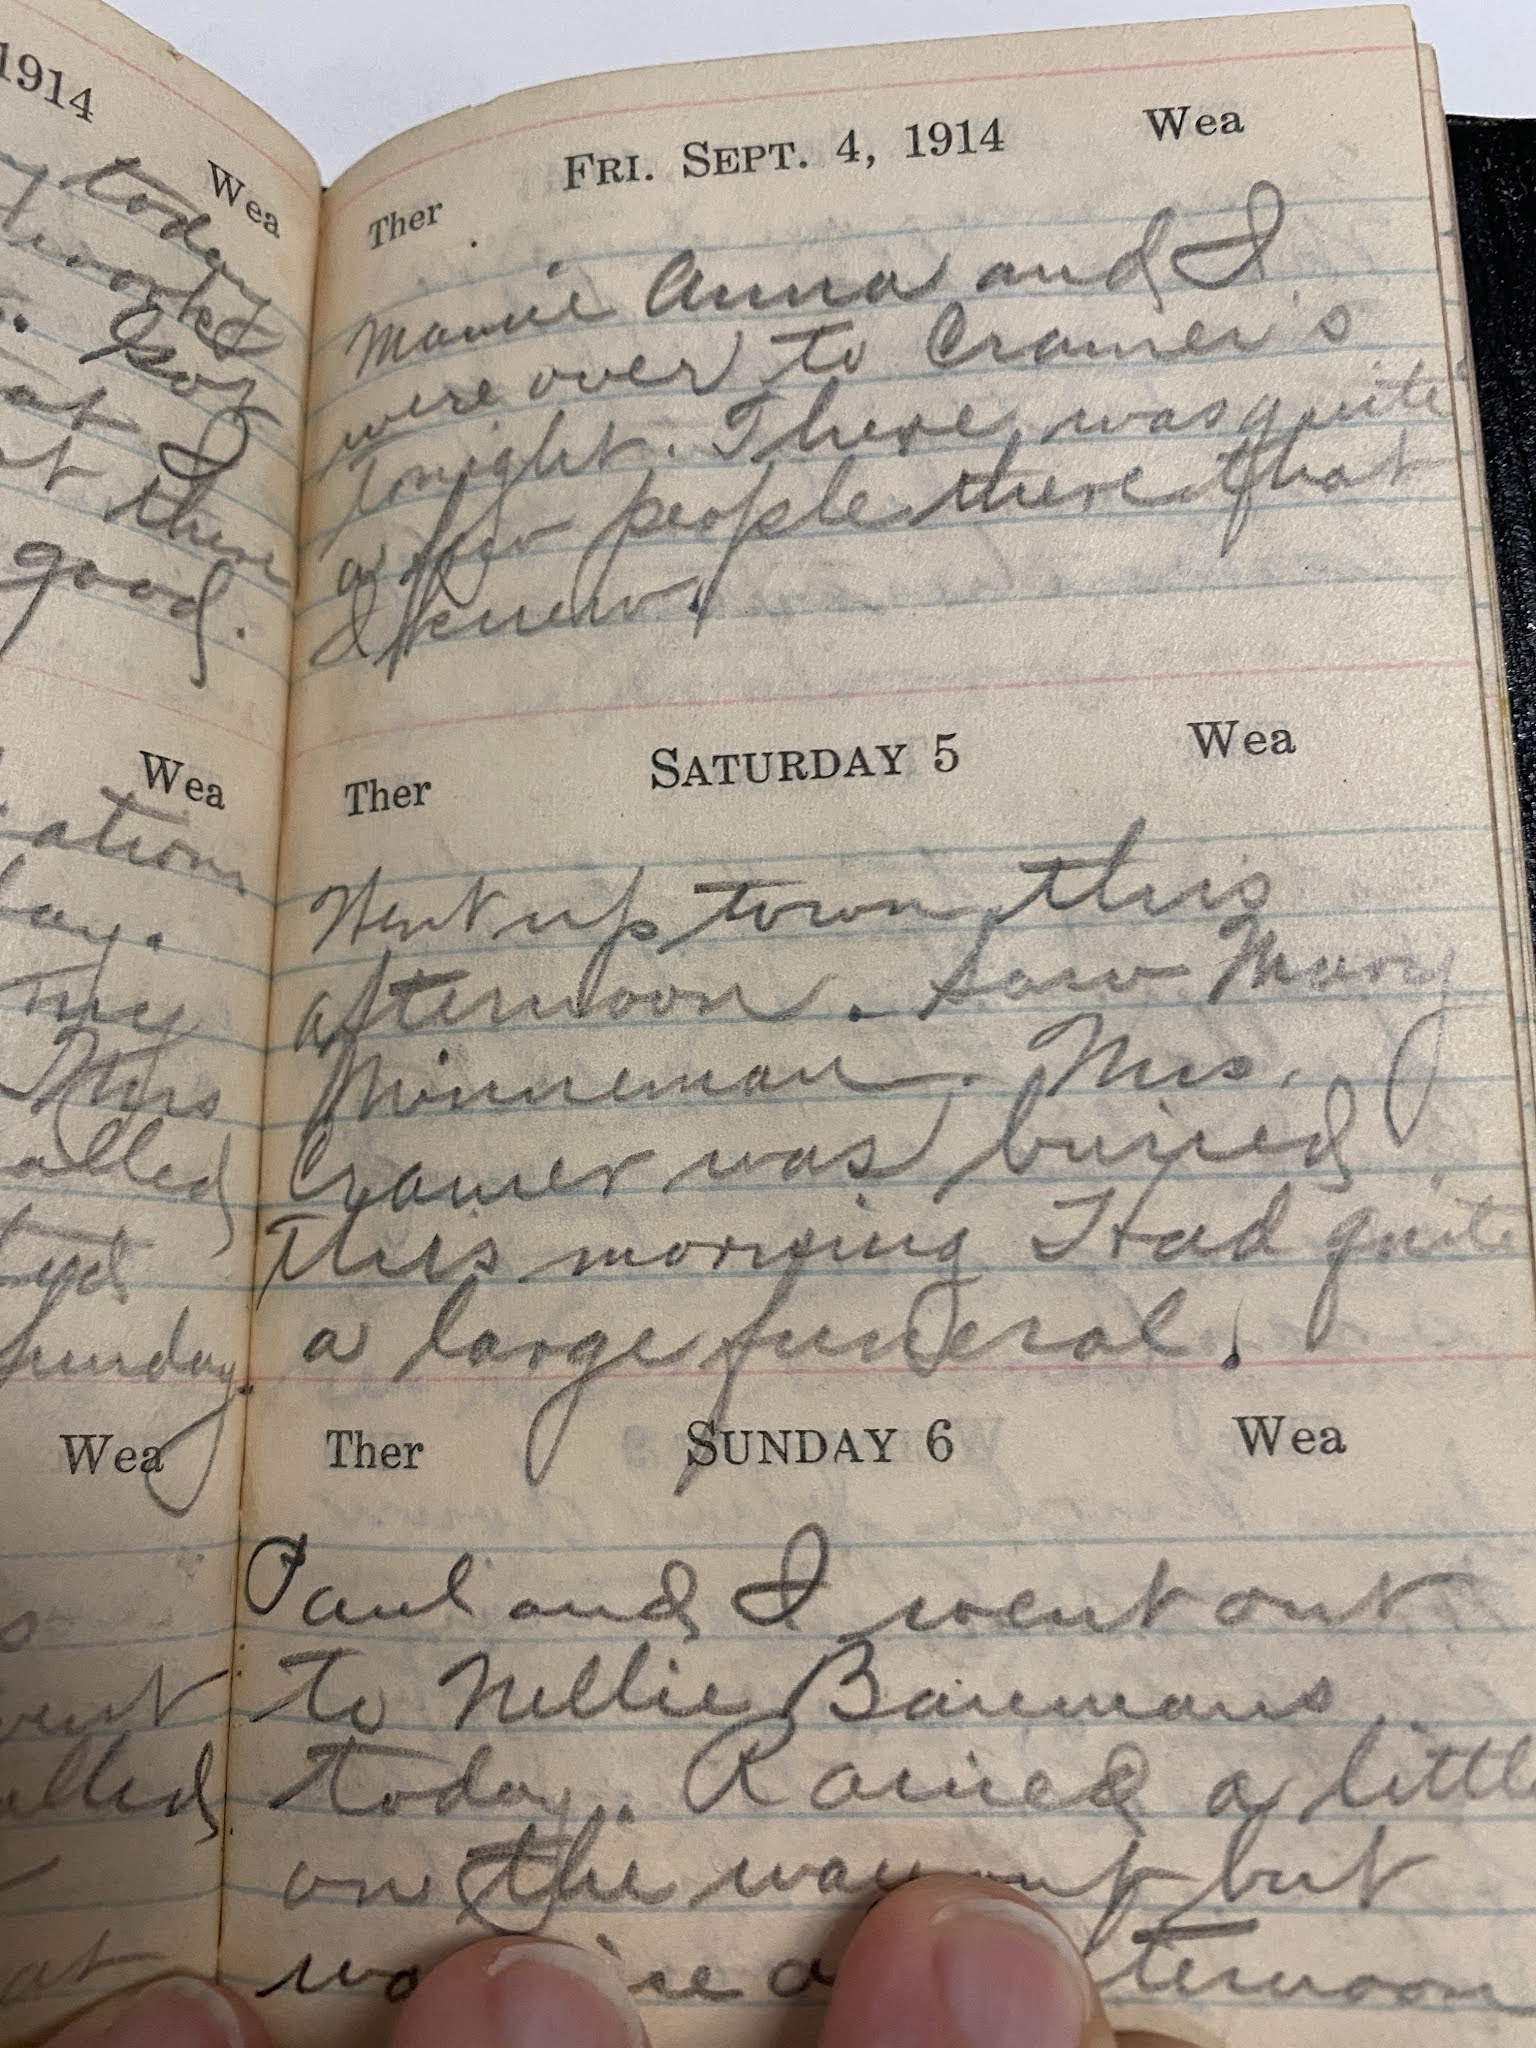 1914
Wea
today
worked
. Got
at I
at there
good.
Wea
ation
ay.
my
This
alled
Sunday.
Wea
s
went
alled
at
FRI. SEPT. 4, 1914
Ther
Wea
Mamie Anna and I
were over to Cramer's
tonight. There was quite
a few people there that
I knew.
Ther
SATURDAY 5
Wea
Went up town this
afternoon. Saw Mary
Minneman. Mrs.
Cramer was buried
this morning Had quite
a large funeral.
Ther
SUNDAY 6
Wea
Paul and I went out
to Nellie Bauemans
today. Rained a little
on the way out but